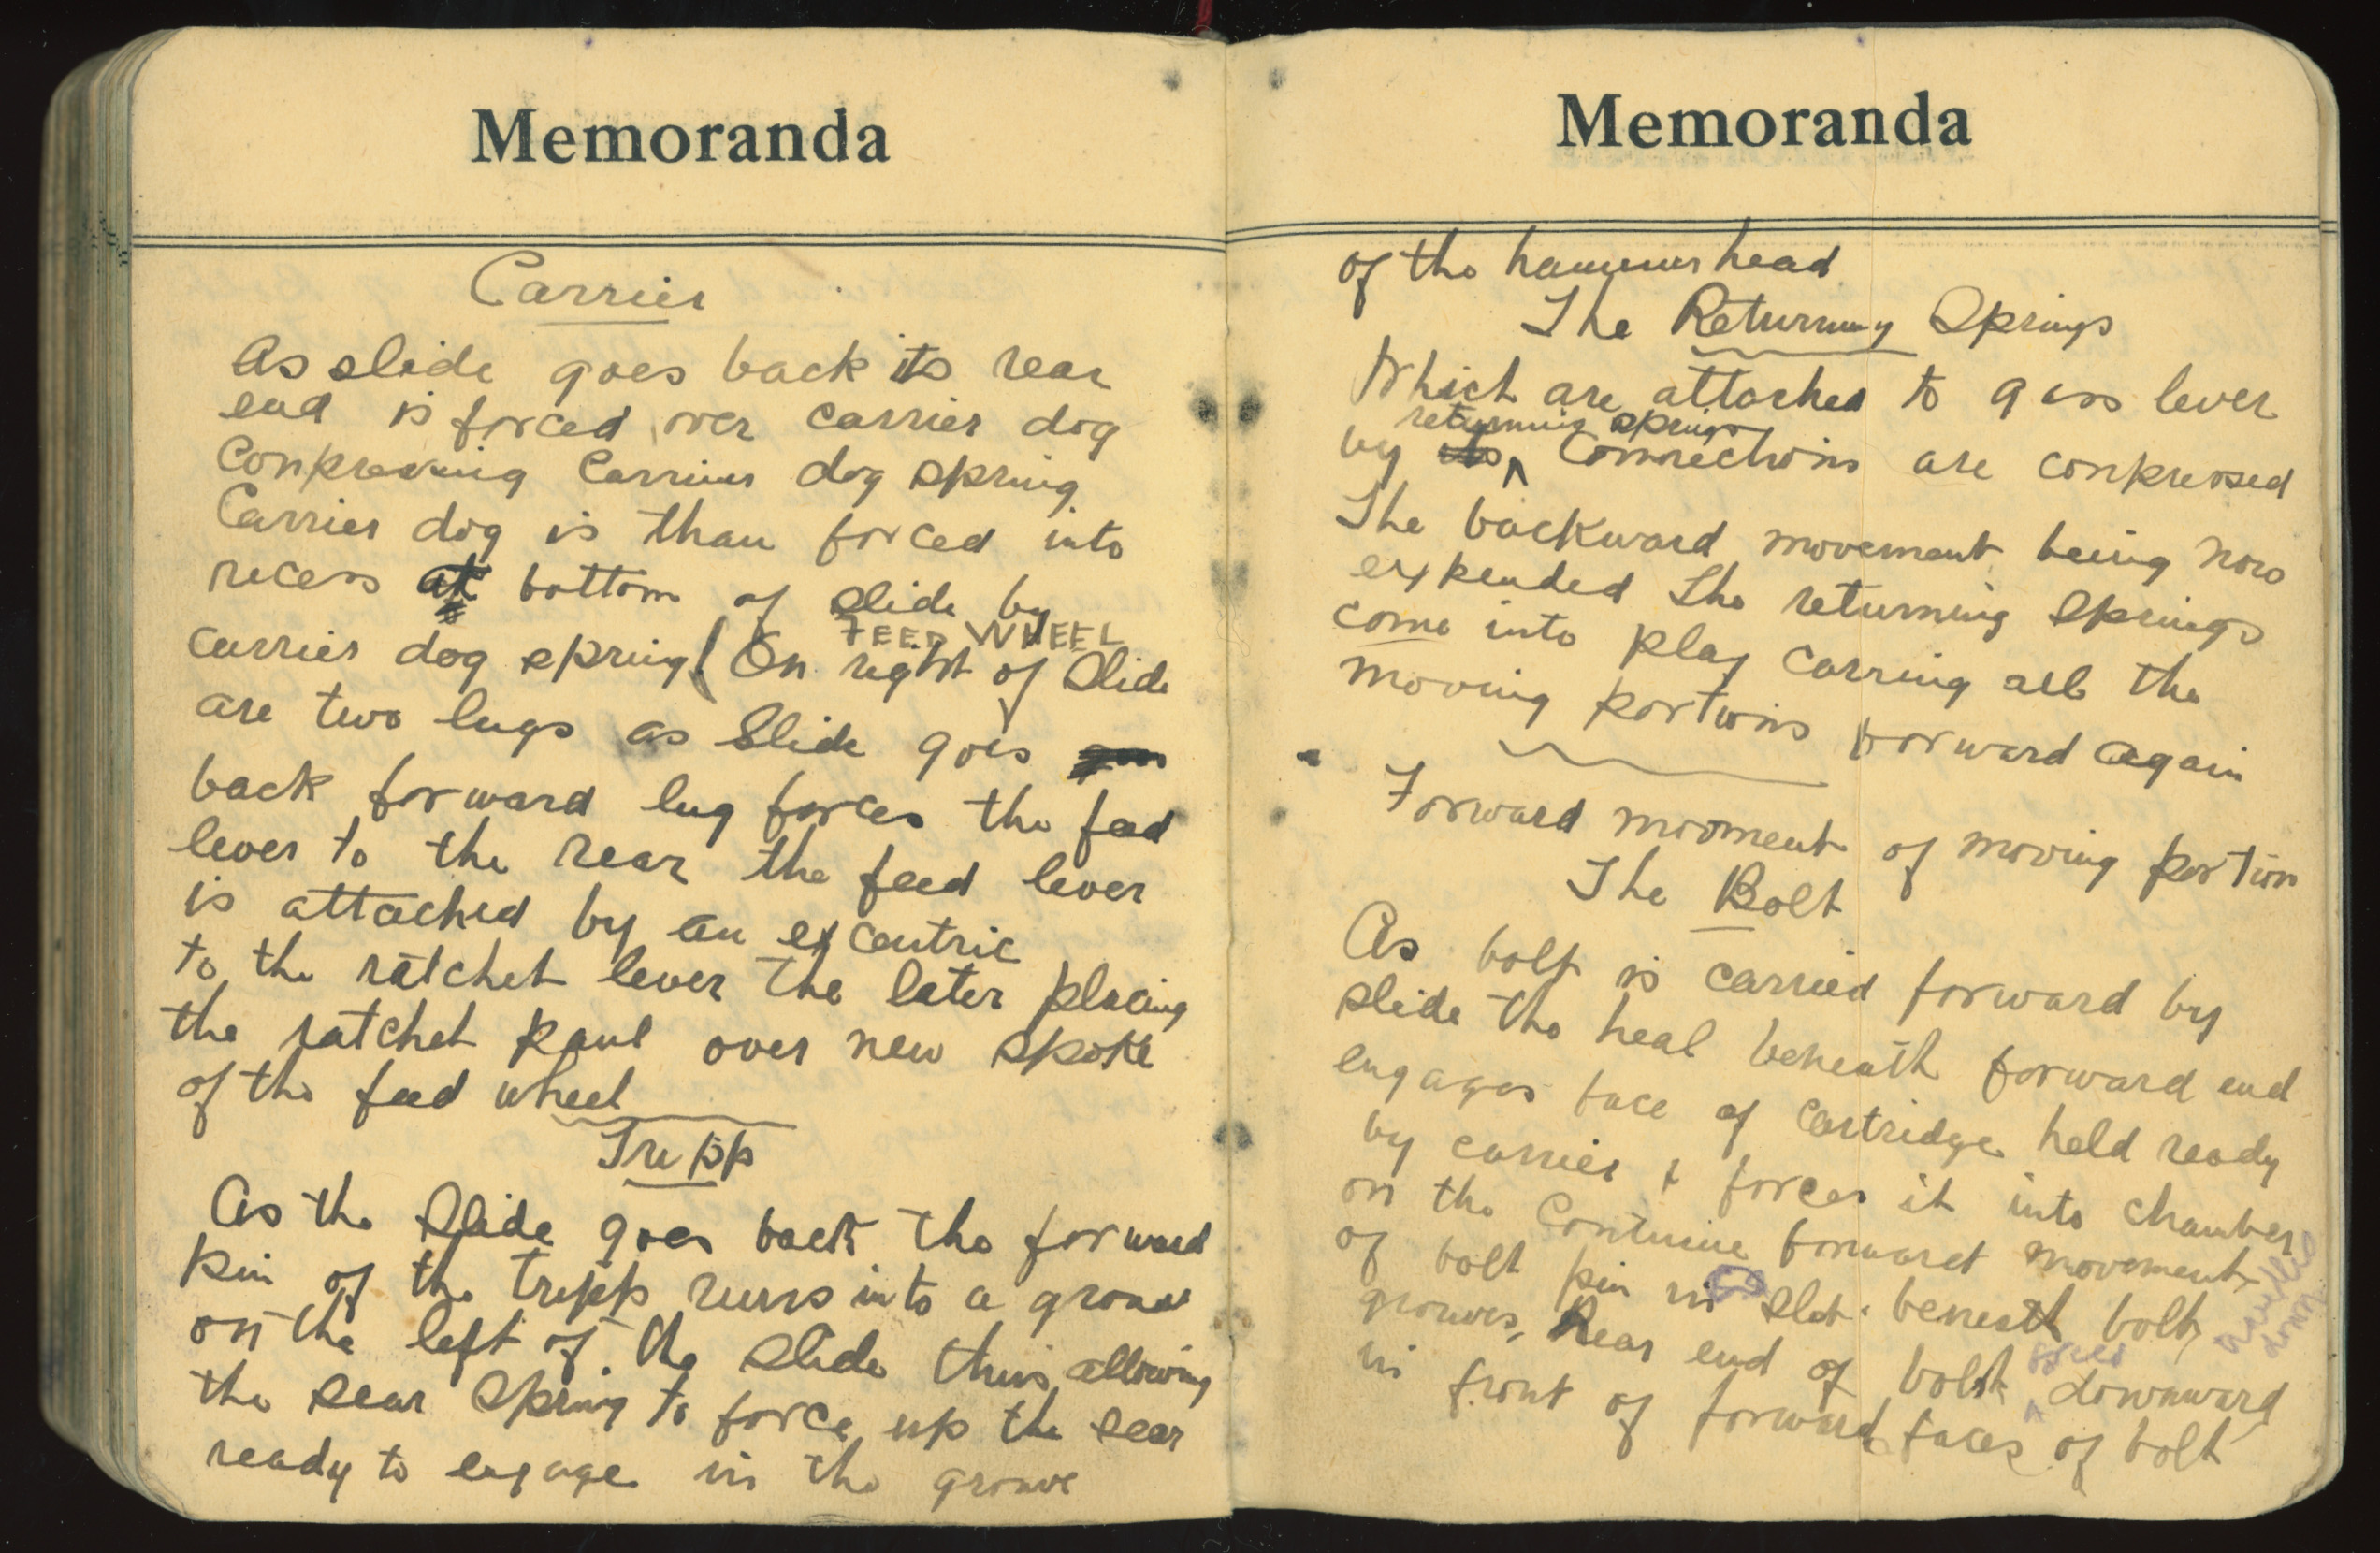 Memoranda
Carrier
As slide goes back its rear
end is forced over carrier dog
Conpressing Carrier dog spring
Carrier dog is than forced into
recess at bottom of slide by
carrier dog spring
FEED WHEEL
On right of Slide
are two lugs as Slide goes
back forward lug forces the feed
lever to the rear the feed lever
is attached by an excentric
to the ratchet lever the later placing
the ratchet paul over new spoke
of the feed wheel
Tripp
As the Slide goes back the forward
pin of the tripp runs into a groove
on the left of the slide thus allowing
the sear spring to force up the sear
ready to engage in the groove
Memoranda
of the hammer head
The Returning Springs
Which are attached to gass lever
returning springs
by its Connections are conpressed
The backward movement being now
expended the returning springs
come into play carring all the
moving portions forward again
Forward movment of moving portion
The Bolt
As bolt is carried forward by
slide the heal beneath forward end
engages face of Cartridge held ready
by carrier & forces it into chamber
on the Continue forward movement
of bolt pin in slot beneath bolt
grooves, Rear end of bolt downward
in front of forward faces of bolt